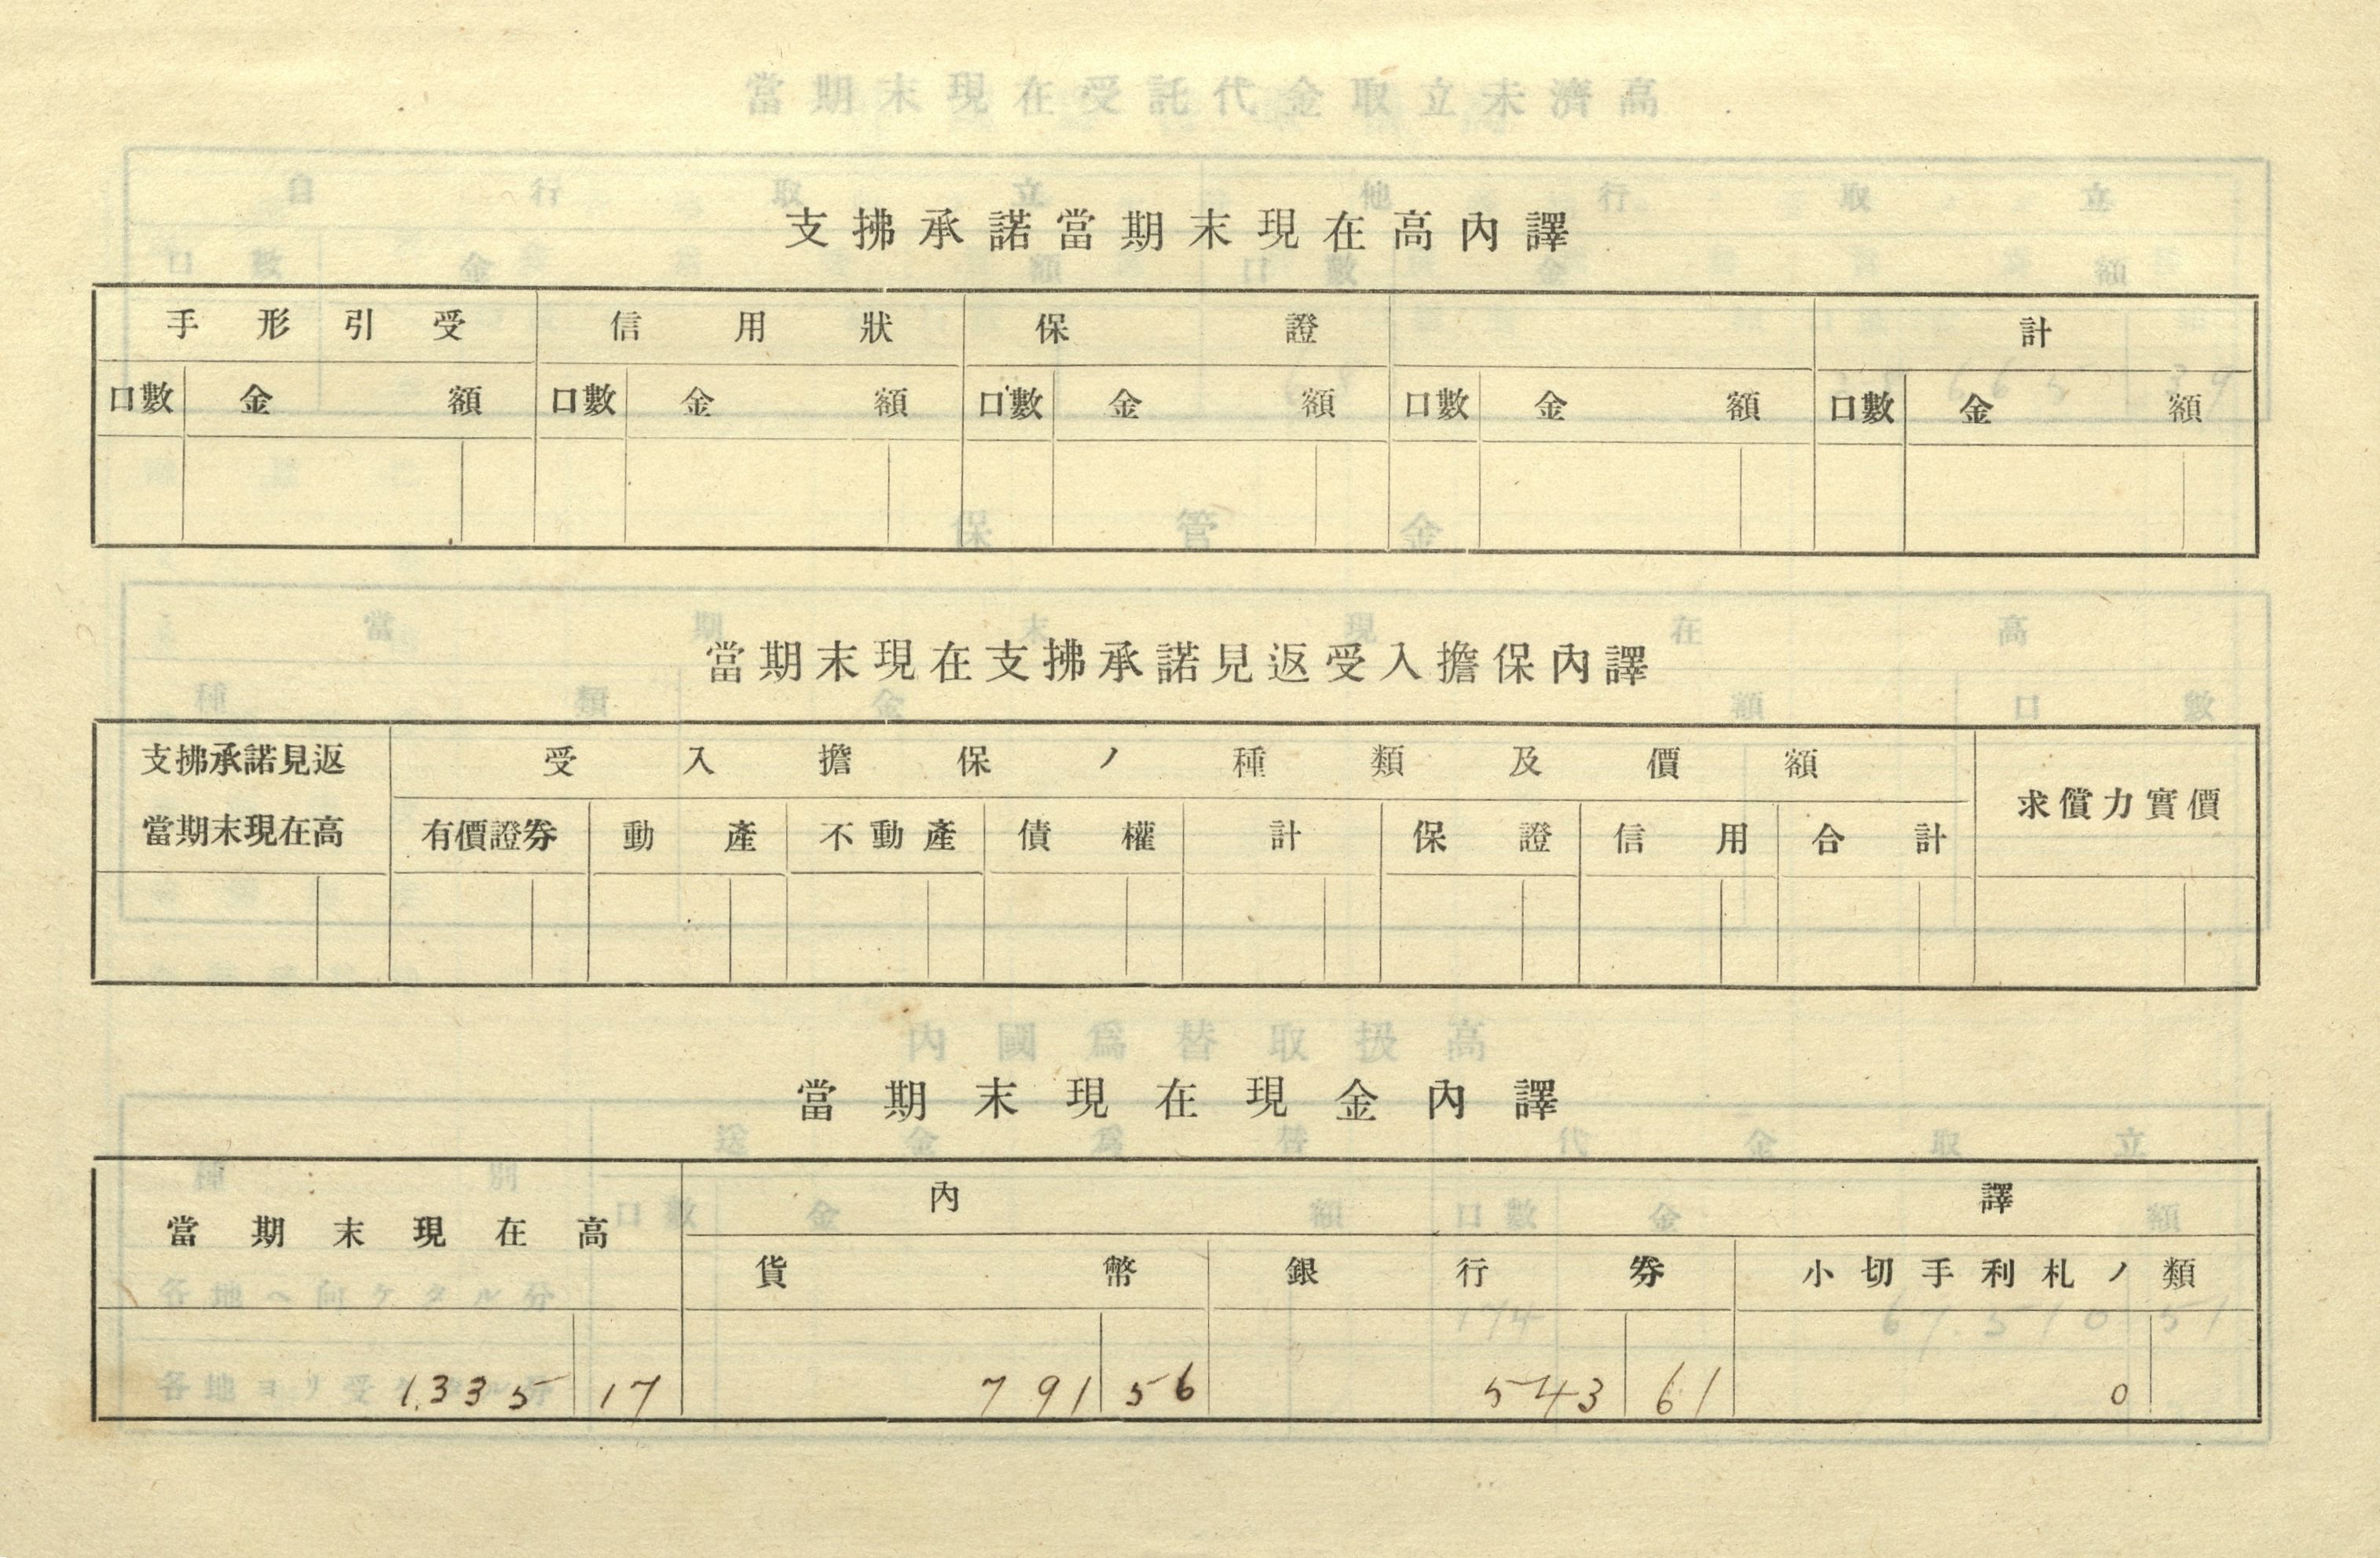 支拂承諾當期末現在高內譯
手形引受 信用狀 保證 計
口數 金額 口數 金額 口數 金額 口數 金額 口數 金額
當期末現在支拂承諾見返受入擔保內譯
支拂承諾見返 受入擔保ノ種類及價額 求償力實價
當期末現在高 有價證券 動產 不動產 債權 計 保證 信用 合計
當期末現在現金內譯
當期末現在高 內譯
貨幣 銀行券 小切手利札ノ類
1,335 17 791 56 543 61 0